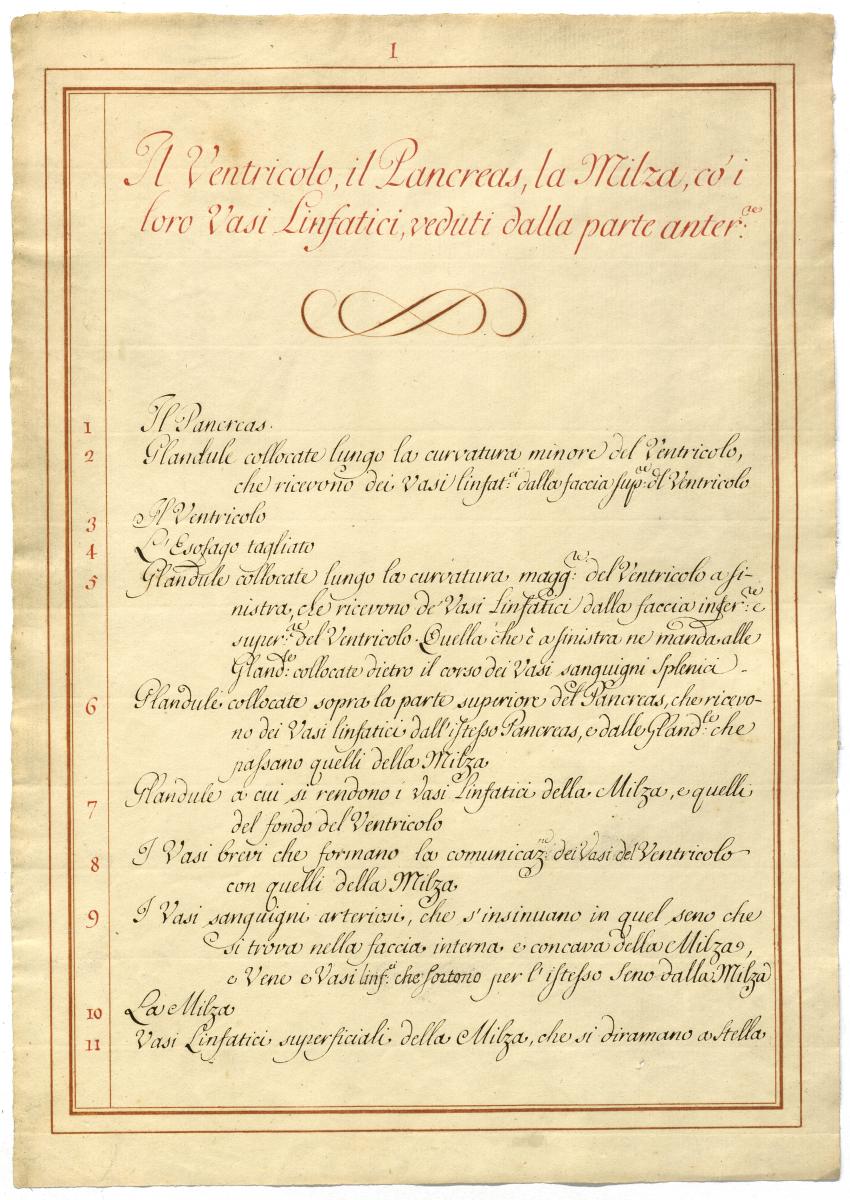 I
Il Ventricolo, il Pancreas, la Milza, co' i
loro Vasi Linfatici, veduti dalla parte anter:re
1 Il Pancreas.
2 Glandule collocate lungo la curvatura minore del Ventricolo,
che ricevono dei Vasi linfat:ci dalla faccia sup:re dl Ventricolo
3 Il Ventricolo
4 L'Esofago tagliato
5 Glandule collocate lungo la curvatura magg:re del Ventricolo a si-
nistra, che ricevono de' Vasi Linfatici dalla faccia infer:re e
super:re del Ventricolo. Quella che è a sinistra ne manda alle
Gland:le collocate dietro il corso dei Vasi sanguigni Splenici -
6 Glandule collocate sopra la parte superiore del Pancreas, che ricevo-
no dei Vasi linfatici dall'istesso Pancreas, e dalle Gland:le che
passano quelli della Milza
7 Glandule a cui si rendono i Vasi Linfatici della Milza, e quelli
del fondo del Ventricolo
8 I Vasi brevi che formano la comunicaz:ne dei Vasi del Ventricolo
con quelli della Milza
9 I Vasi sanguigni arteriosi, che s'insinuano in quel seno che
si trova nella faccia interna e concava della Milza,
e Vene e Vasi linf:ci che sortono per l'istesso Seno dalla Milza
10 La Milza
11 Vasi Linfatici superficiali della Milza, che si diramano a Stella